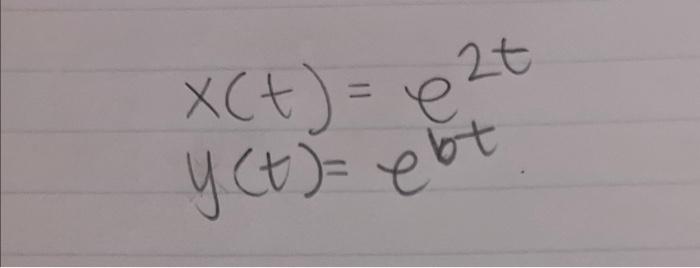 x(t) = e^{2t}
y(t) = e^{bt}.